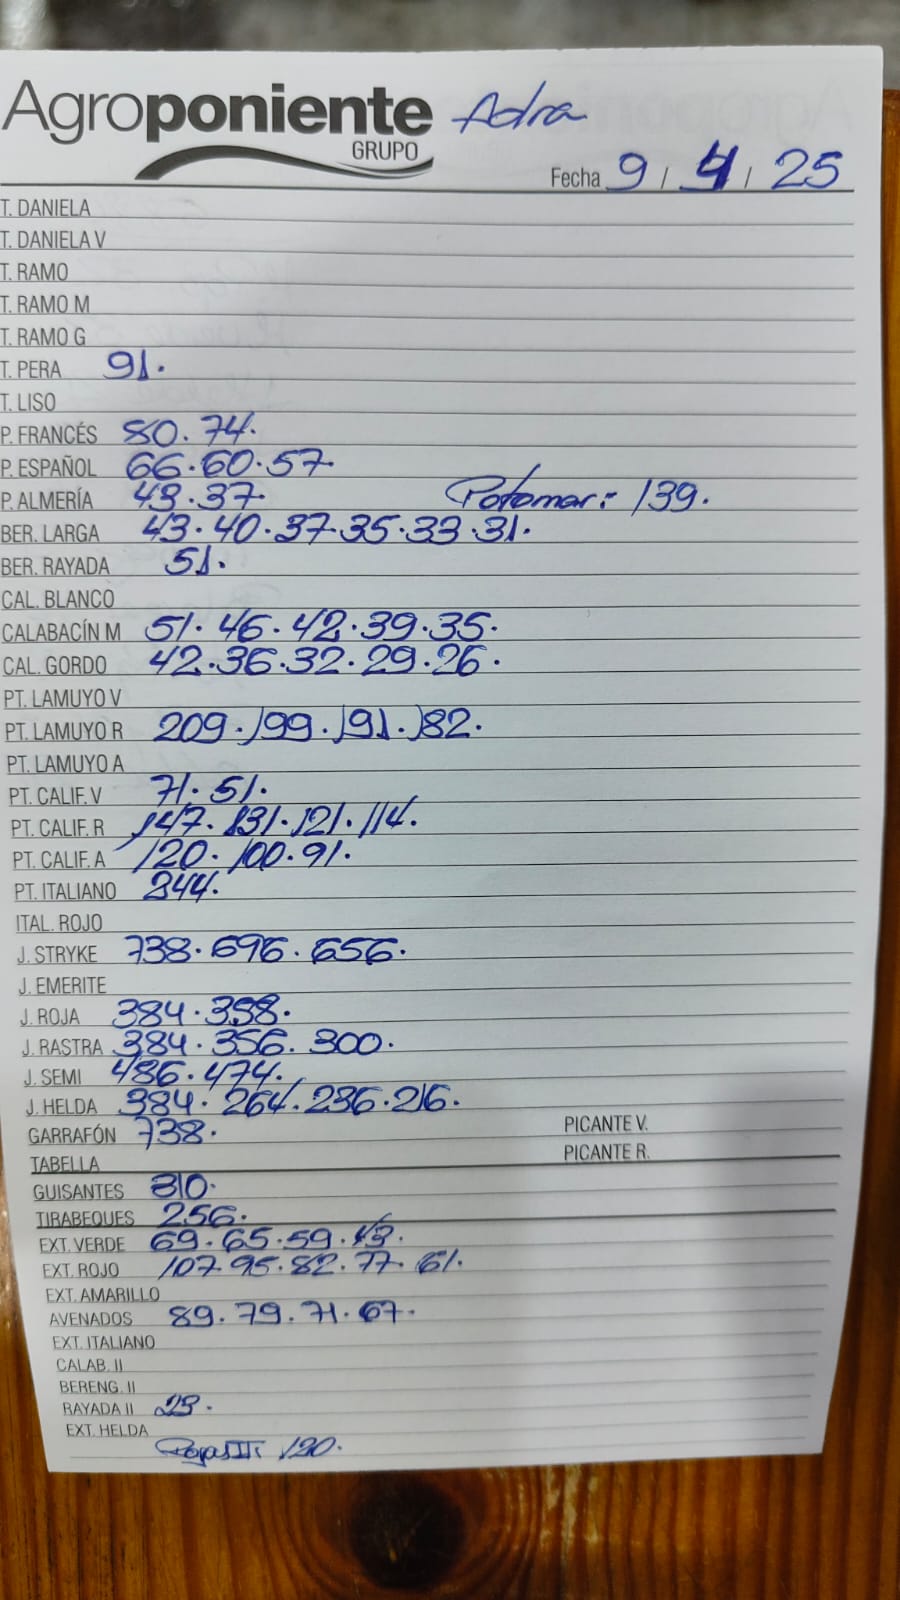 Agroponiente Adra
GRUPO
Fecha 9 / 4 / 25
T. DANIELA
T. DANIELA V
T. RAMO
T. RAMO M
T. RAMO G
T. PERA 91.
T. LISO
P. FRANCÉS 80. 74.
P. ESPAÑOL 66. 60. 57.
P. ALMERÍA 43. 37. Potomar: 139.
BER. LARGA 43. 40. 37. 35. 33. 31.
BER. RAYADA 51.
CAL. BLANCO
CALABACÍN M 51. 46. 42. 39. 35.
CAL. GORDO 42. 36. 32. 29. 26.
PT. LAMUYO V
PT. LAMUYO R 209. 199. 191. 182.
PT. LAMUYO A
PT. CALIF. V 71. 51.
PT. CALIF. R 147. 131. 121. 114.
PT. CALIF. A 120. 100. 91.
PT. ITALIANO 344.
ITAL. ROJO
J. STRYKE 738. 696. 656.
J. EMERITE
J. ROJA 384. 358.
J. RASTRA 384. 356. 300.
J. SEMI 486. 474.
J. HELDA 384. 264. 236. 216.
GARRAFÓN 738. PICANTE V.
TABELLA PICANTE R.
GUISANTES 310.
TIRABEQUES 256.
EXT. VERDE 69. 65. 59. 43.
EXT. ROJO 107. 95. 82. 77. 61.
EXT. AMARILLO
AVENADOS 89. 79. 71. 67.
EXT. ITALIANO
CALAB. II
BERENG. II
RAYADA II 23.
EXT. HELDA
120.